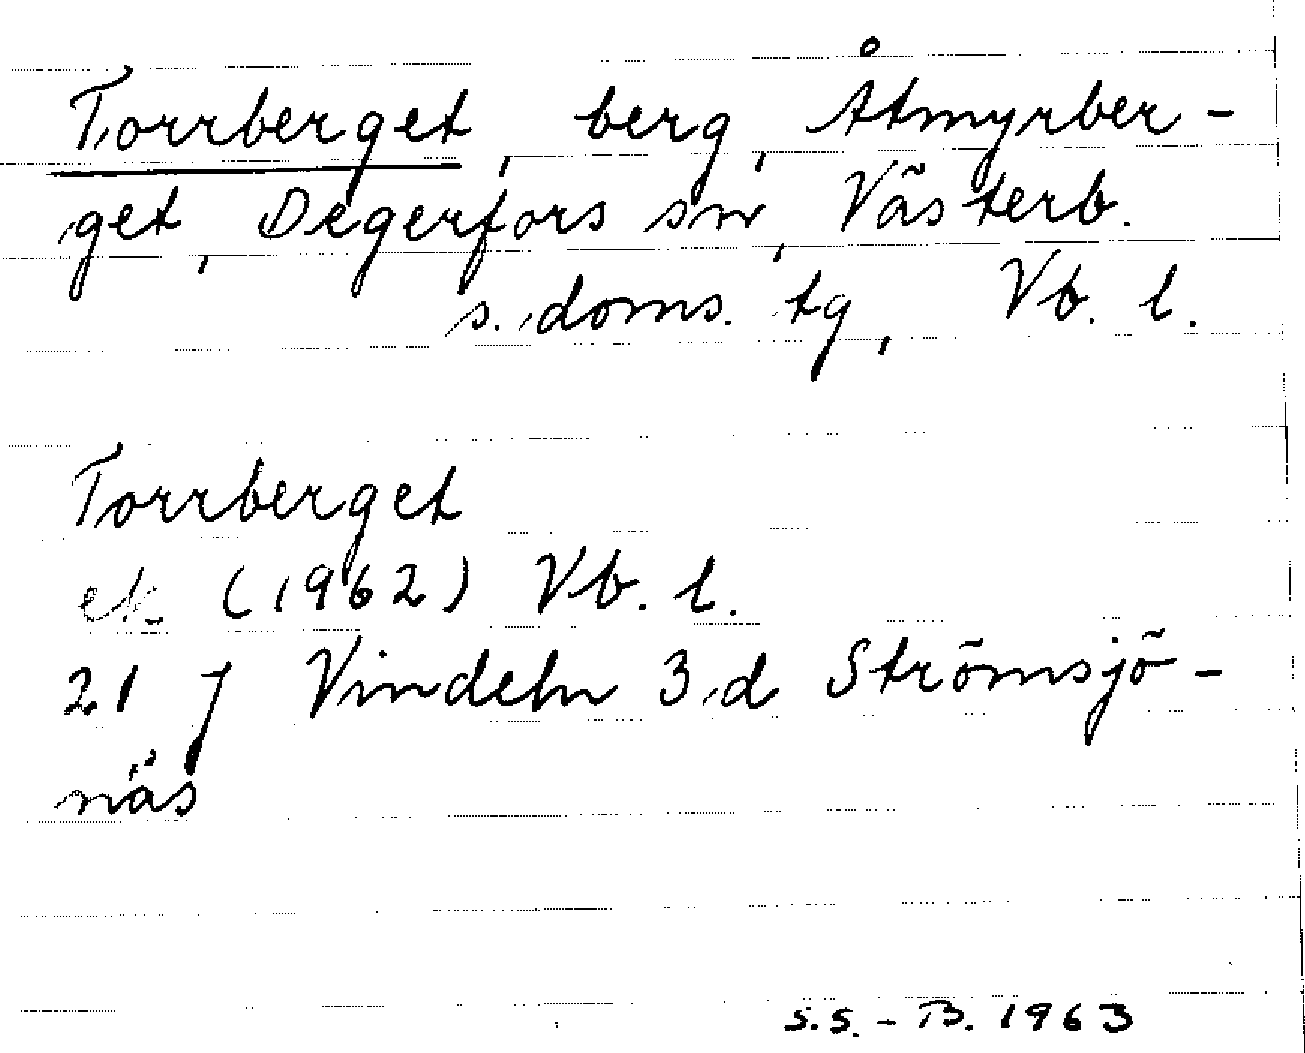 Torrberget, berg, Åtmyrber-
get, Degerfors sn, Västerb.
s. doms. tg, Vb. l.
Torrberget
ek (1962) Vb. l.
21 J Vindeln 3 d Strömsjö-
näs
S.S. - B. 1963